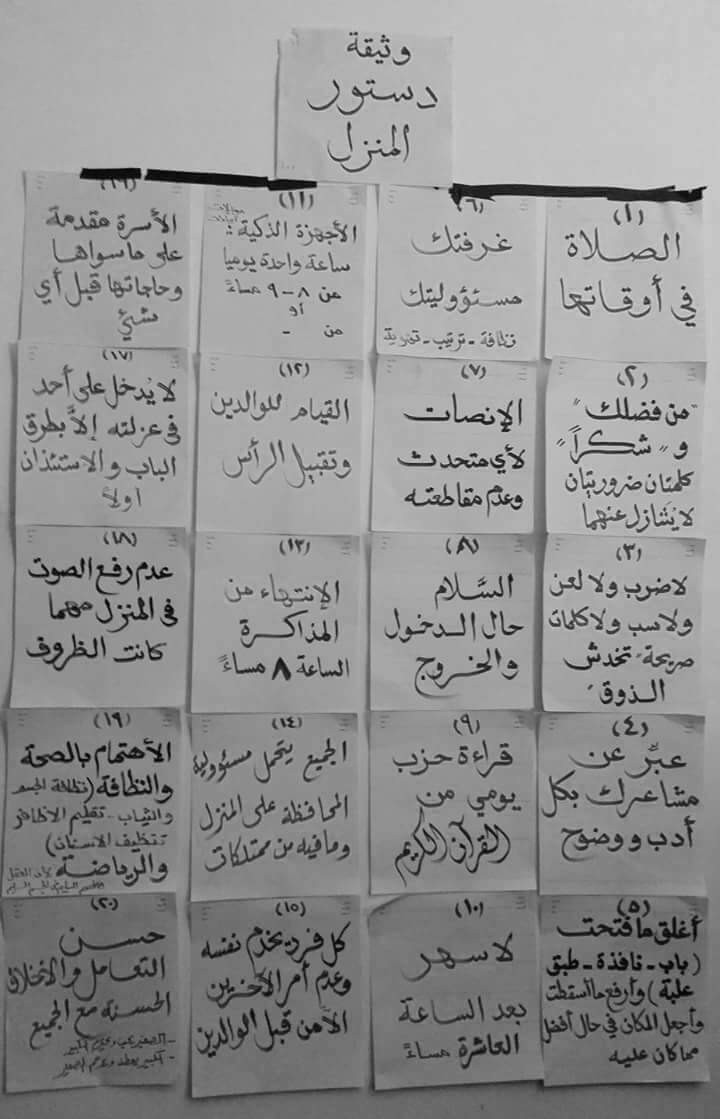 وثيقة
دستور
المنزل
(١)
الصلاة
في أوقاتها
(٢)
"من فضلك"
و "شكراً"
كلمتان ضروريتان
لا يتنازل عنهما
(٣)
لا ضرب ولا لعن
ولا سب ولا كلمات
صريحة "تخدش
الذوق"
(٤)
عبِّر عن
مشاعرك بكل
أدب ووضوح
(٥)
أغلق ما فتحت
(باب - نافذة - طبق
علبة) وأرفع ما أسقطت
وأجعل المكان في حال أفضل
مما كان عليه
(٦)
غرفتك
مسئووليتك
نظافة - ترتيب - تهوية
(٧)
الإنصات
لأي متحدث
وعدم مقاطعته
(٨)
السَّلام
حال الدخول
والخروج
(٩)
قراءة حزب
يومي من
القرآن الكريم
(١٠)
لا سهر
بعد الساعة
العاشرة مساءً
(١١)
الأجهزة الذكية:
ساعة واحدة يوميا
من ٨ - ٩ مساءً
أو
من -
(١٢)
القيام للوالدين
وتقبيل الرأس
(١٣)
الإنتهاء من
المذاكرة
الساعة ٨ مساءً
(١٤)
الجميع يتحمل مسئوولية
المحافظة على المنزل
وما فيه من ممتلكات
(١٥)
كل فرد يخدم نفسه
وعدم أمر الآخرين
الا من قبل الوالدين
(١٦)
الأسرة مقدمة
على ما سواها
وحاجاتها قبل أي
شئ
(١٧)
لا يُدخل على أحد
في عزلته إلاَّ بطرق
الباب والاستئذان
اولاً
(١٨)
عدم رفع الصوت
في المنزل مهما
كانت الظروف
(١٩)
الأهتمام بالصحة
والنظافة (نظافة الجسم
والثياب - تقليم الاظافر
تنظيف الاسنان)
والرياضة لأن العقل
السليم في الجسم السليم
(٢٠)
حسن
التعامل والاخلاق
الحسنة مع الجميع
- الصغير يحب ويحترم الكبير
- الكبير يعطف الصغير